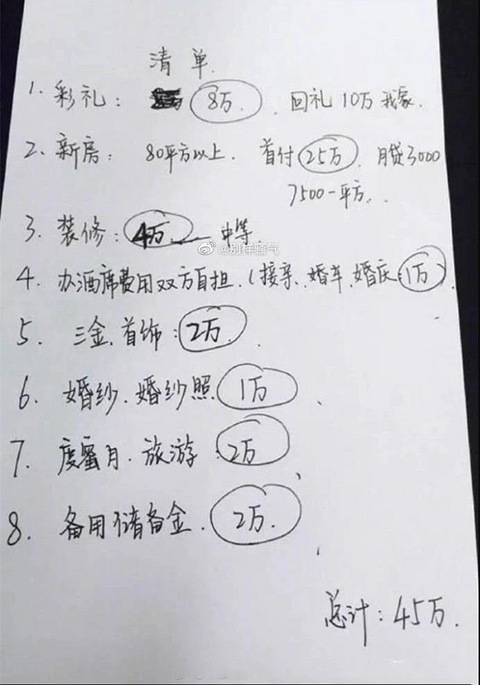 清单
1、彩礼： 8万. 回礼10万我家.
2、新房： 80平方以上. 首付25万. 月贷3000
7500一平方.
3、装修：4万—中等
4、办酒席费用双方自担.（接亲、婚车、婚庆：1万）
5、三金、首饰：2万.
6、婚纱、婚纱照 1万
7、度蜜月、旅游：2万
8、备用储备金、2万.
总计：45万.